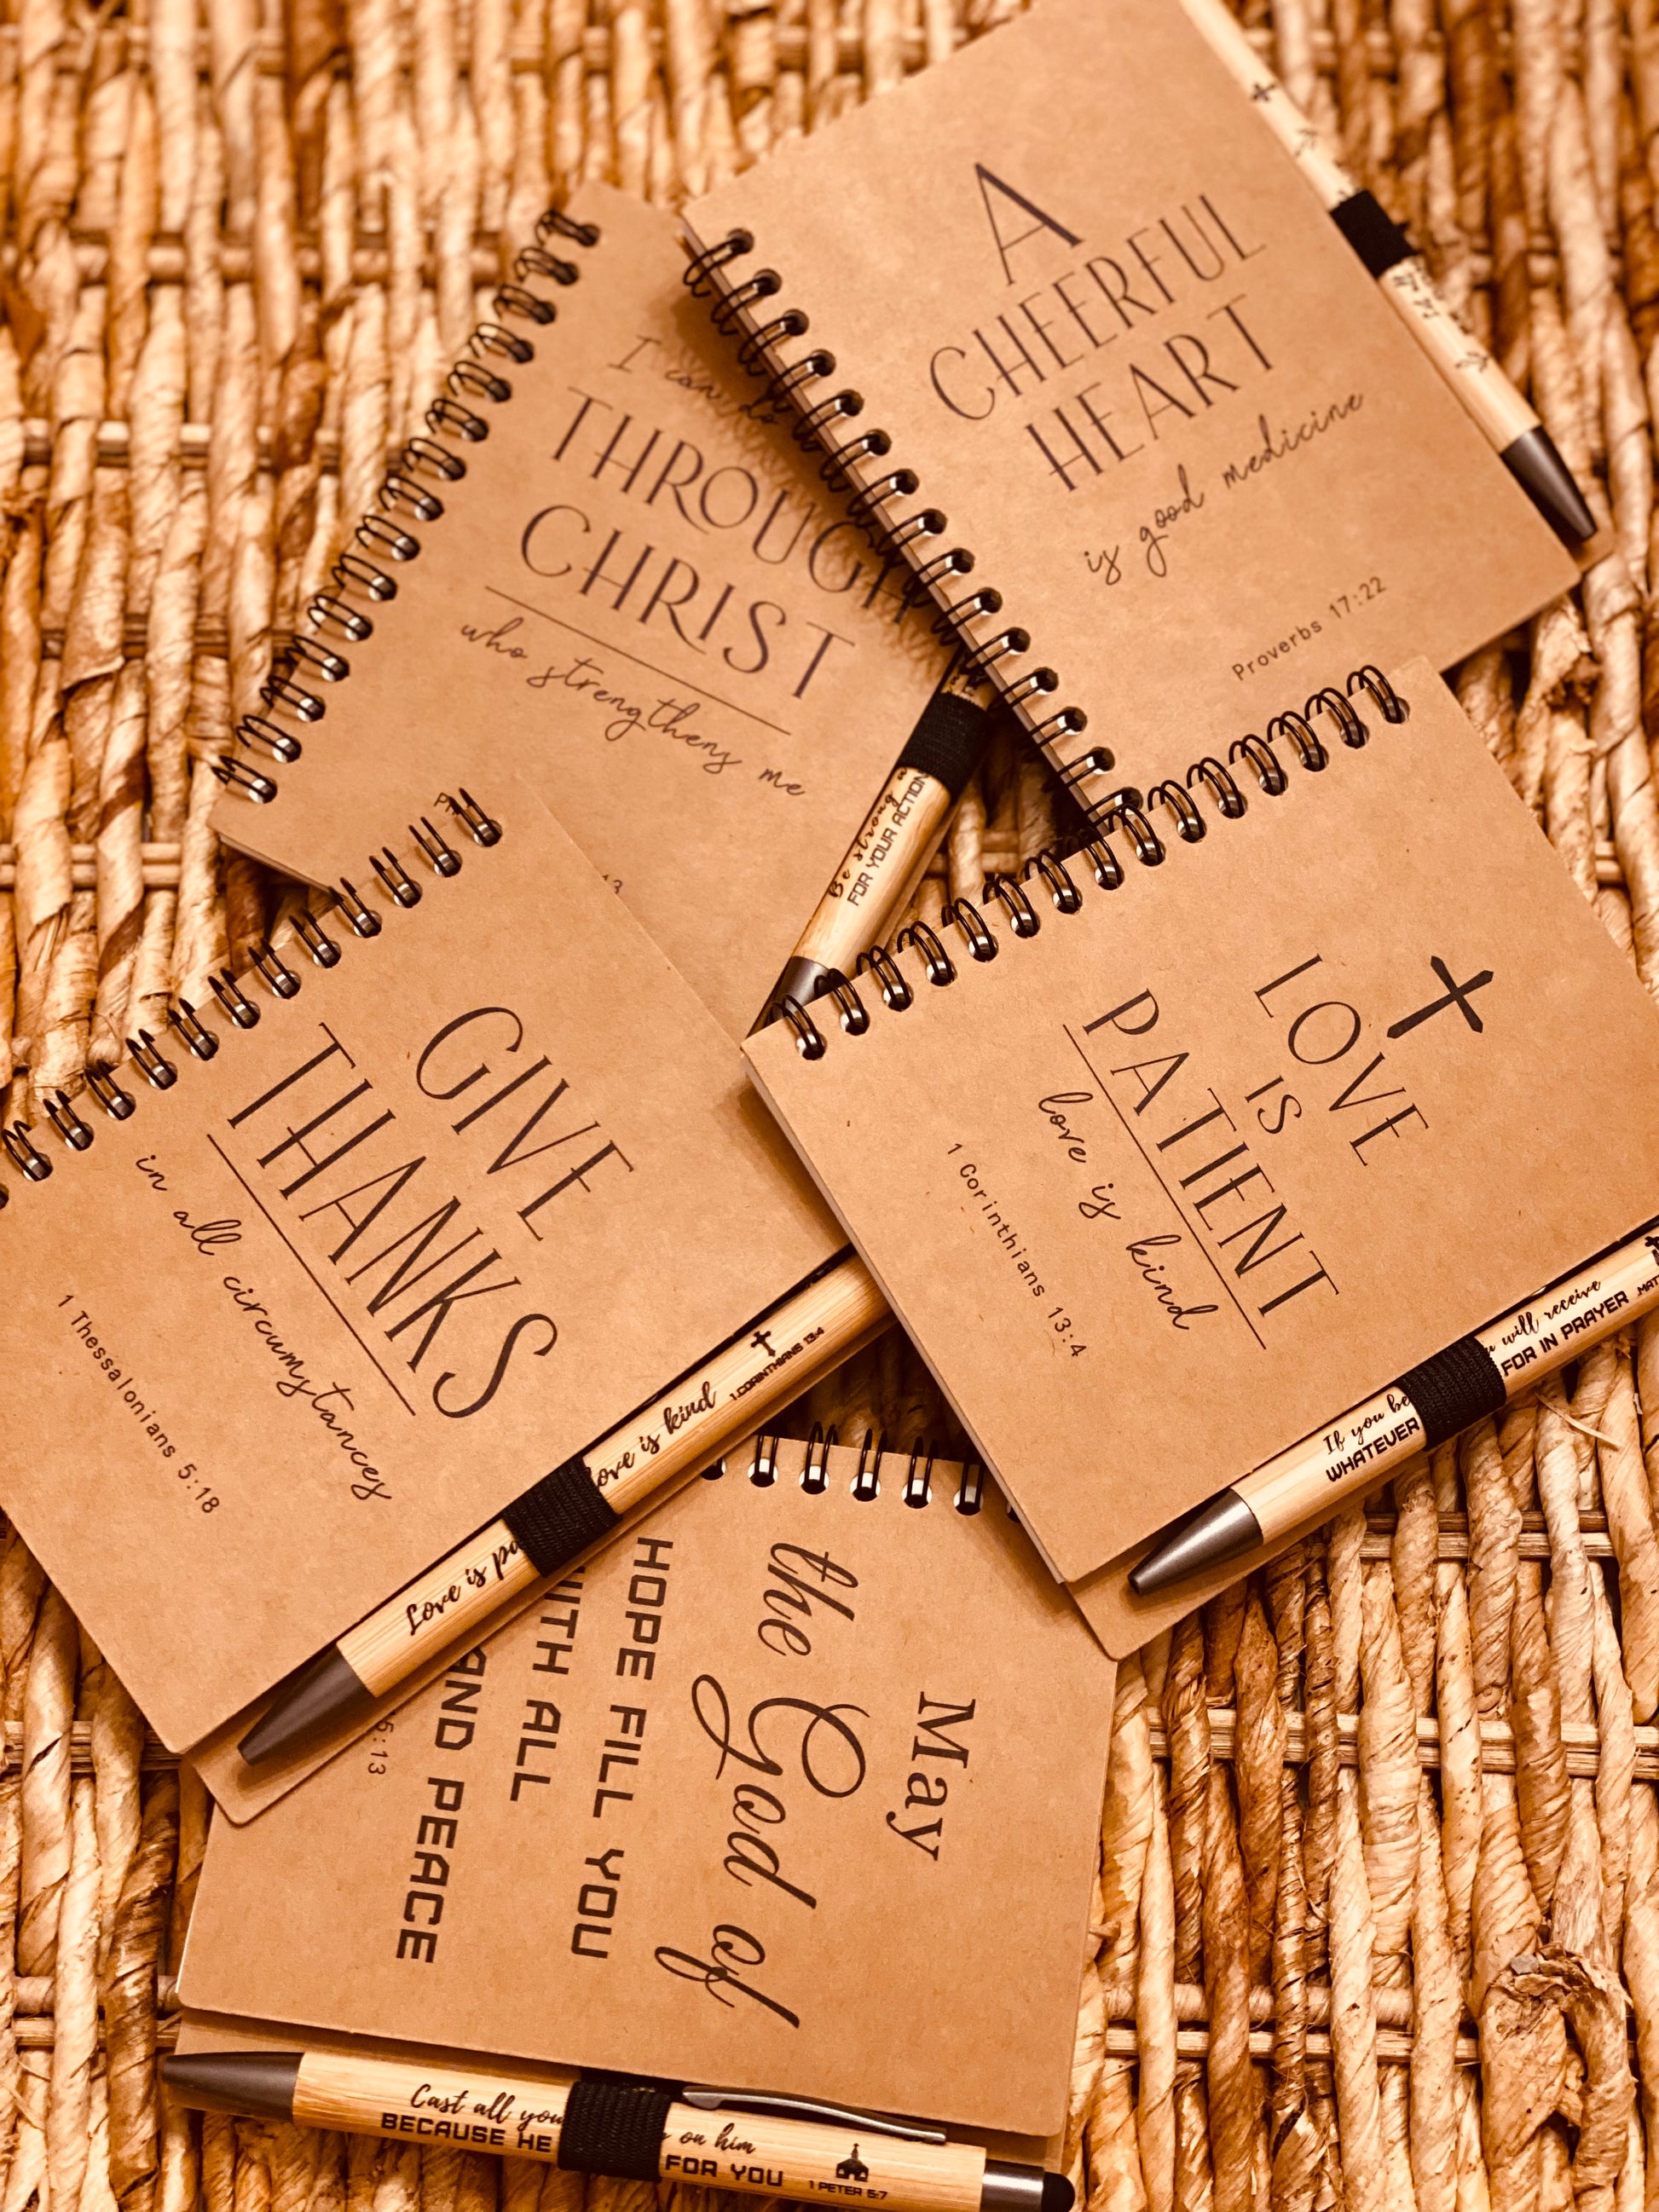 A
CHEERFUL
HEART
is good medicine
Proverbs 17:22
I can do
THROUGH
CHRIST
who strengthens me
13
Be strong
FOR YOUR ACTION
LOVE
IS
PATIENT
love is kind
1 Corinthians 13:4
If you be will receive
WHATEVER FOR IN PRAYER
GIVE
THANKS
in all circumstances
1 Thessalonians 5:18
Love is pa love is kind
1 CORINTHIANS 13:4
May
the God of
HOPE FILL YOU
WITH ALL
AND PEACE
:13
Cast all you on him
BECAUSE HE FOR YOU
1 PETER 5:7